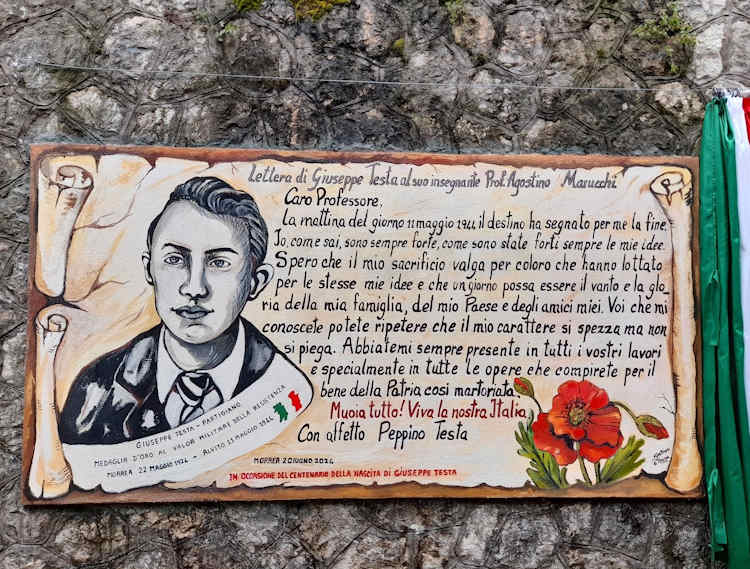 Lettera di Giuseppe Testa al suo insegnante Prof. Agostino Marucchi
Caro Professore,
la mattina del giorno 11 maggio 1944 il destino ha segnato per me la fine.
Io, come sai, sono sempre forte, come sono state forti sempre le mie idee.
Spero che il mio sacrificio valga per coloro che hanno lottato
per le stesse mie idee e che un giorno possa essere il vanto e la glo
ria della mia famiglia, del mio Paese e degli amici miei. Voi che mi
conoscete potete ripetere che il mio carattere si spezza ma non
si piega. Abbiatemi sempre presente in tutti i vostri lavori
e specialmente in tutte le opere che compirete per il
bene della Patria così martoriata.
Muoia tutto! Viva la nostra Italia
Con affetto Peppino Testa
GIUSEPPE TESTA - PARTIGIANO
MEDAGLIA D'ORO AL VALOR MILITARE DELLA RESISTENZA
MORREA 22 MAGGIO 1924 - ALVITO 13 MAGGIO 1944
MORREA 2 GIUGNO 2024
IN OCCASIONE DEL CENTENARIO DELLA NASCITA DI GIUSEPPE TESTA